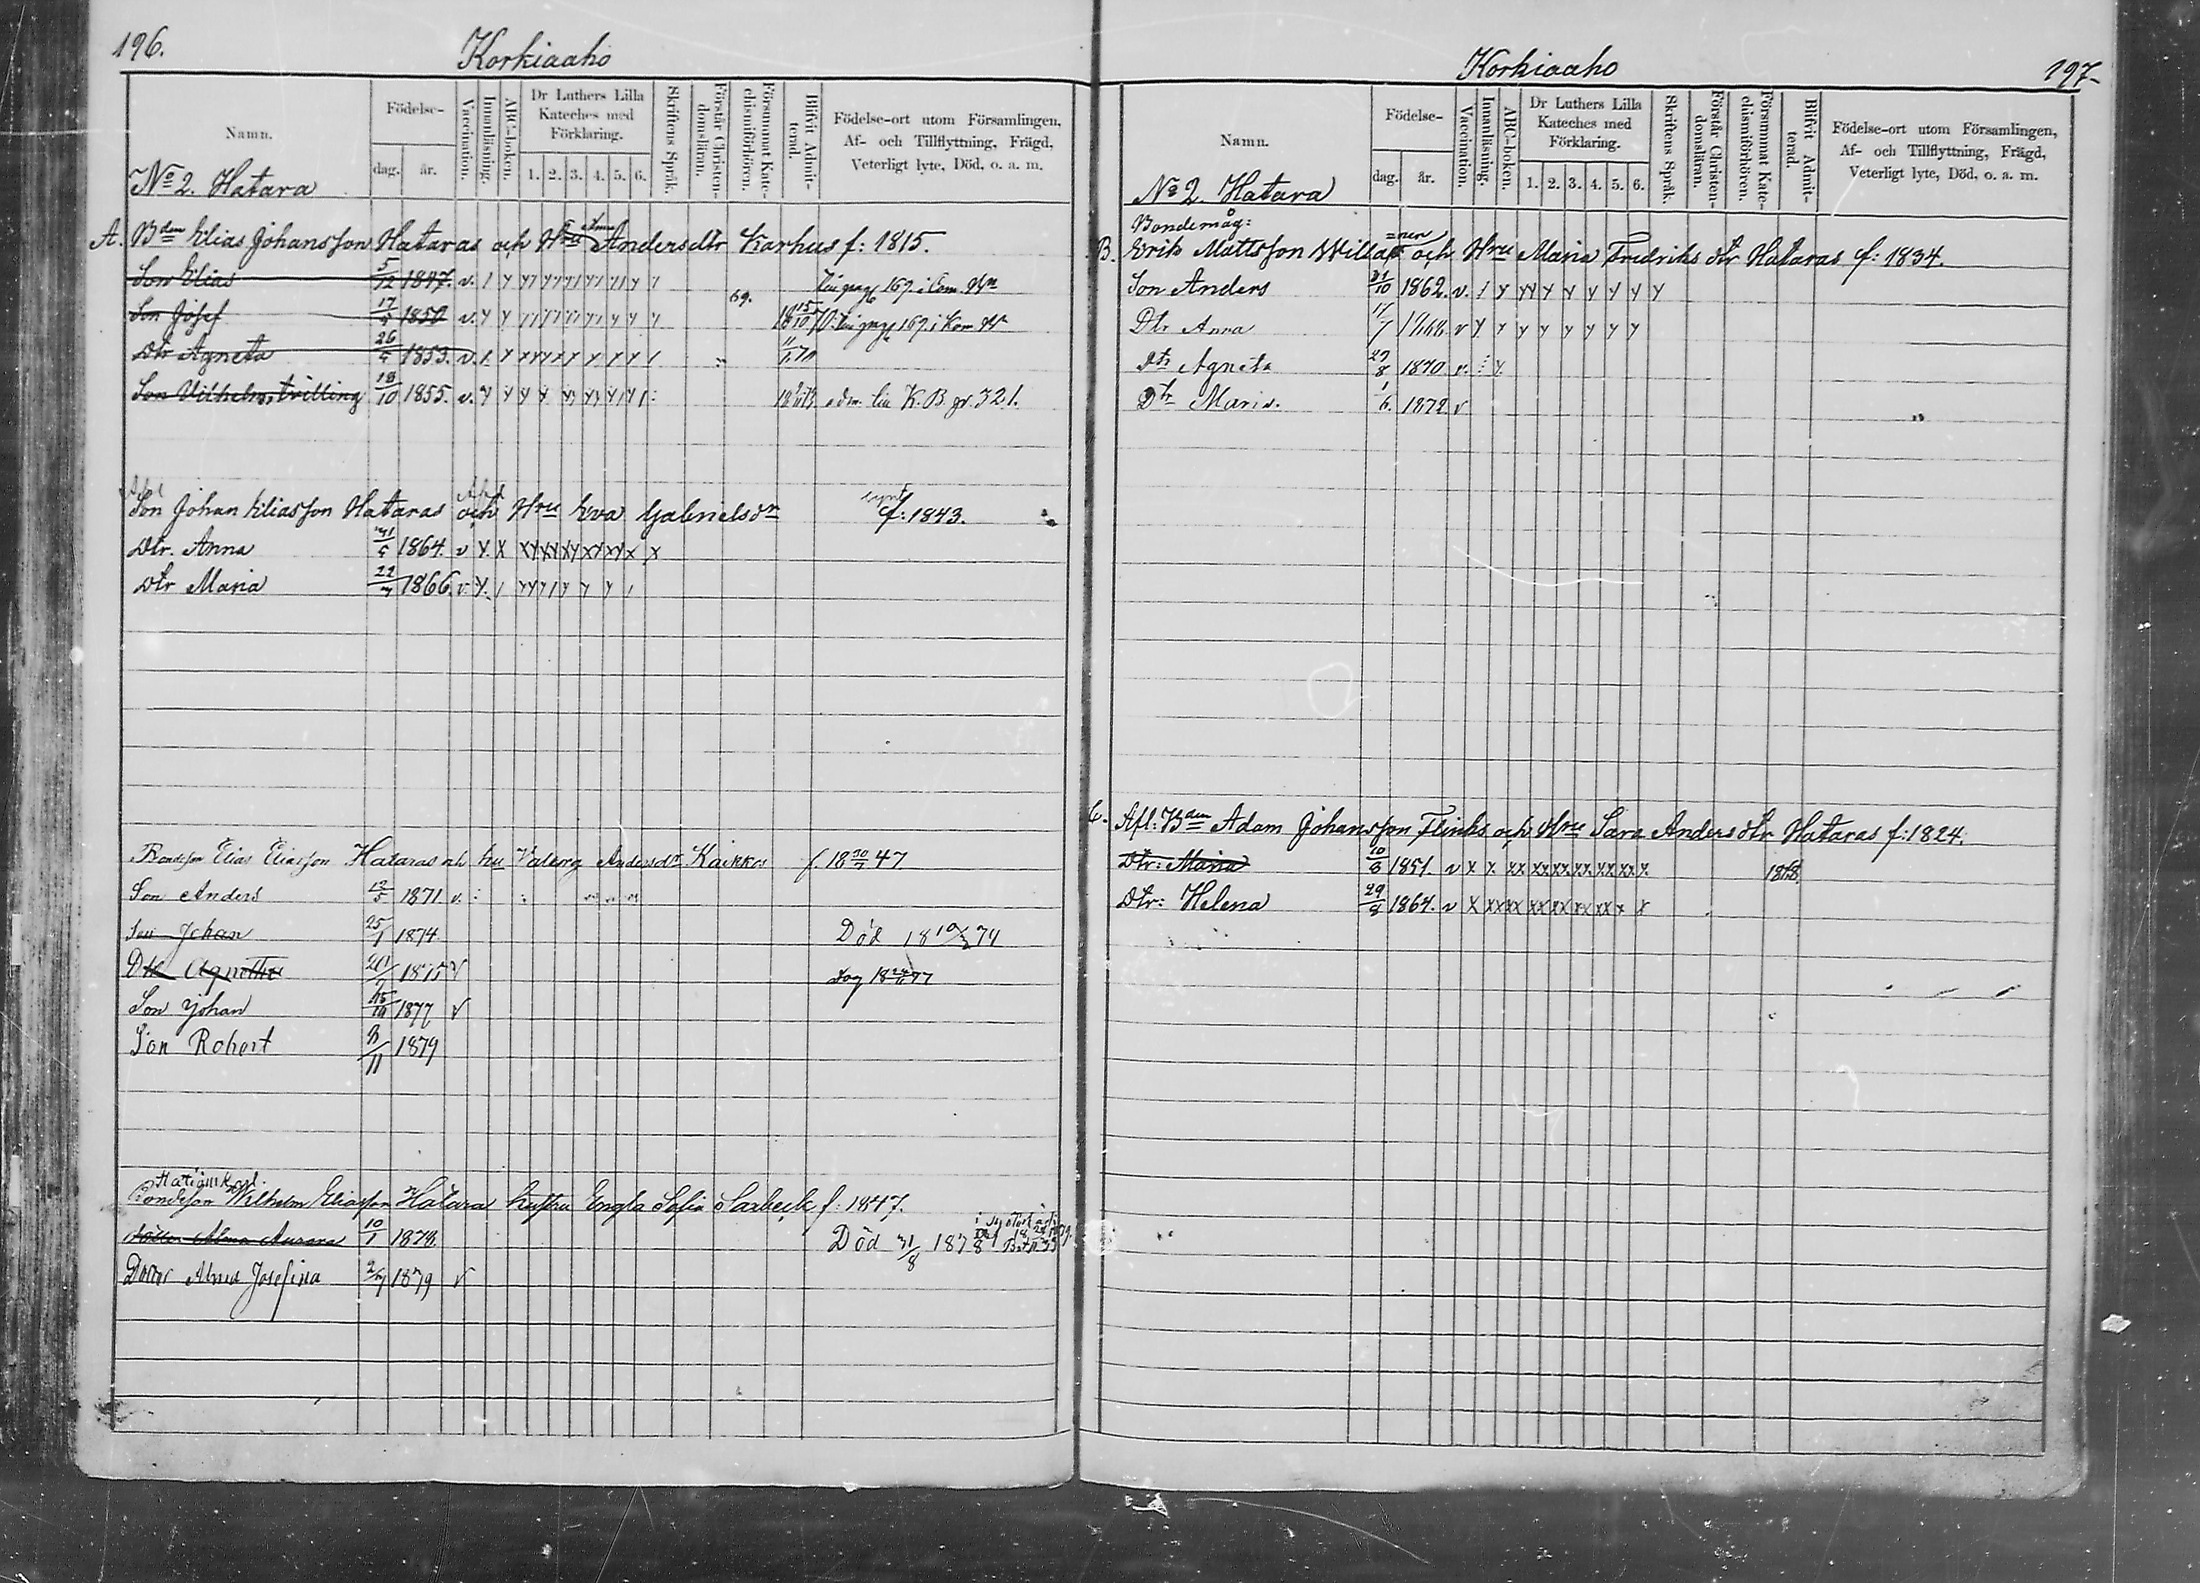 196.
Korkiaaho
Namn.
Födelse-
dag. år.
Vaccination.
Innanläsning.
ABC-boken.
Dr Luthers Lilla Kateches med Förklaring.
1. 2. 3. 4. 5. 6.
Skriftens Språk.
Förstår Christendomsläran.
Försummat Katechismiförhören.
Blifvit Admitterad.
Födelse-ort utom Församlingen,
Af- och Tillflyttning, Frägd,
Veterligt lyte, Död, o. a. m.
No 2. Hatara
A. Bden Elias Johansson Hataras och Hru Anna Andersdtr Karhus f: 1815.
Son Elias 5/12 1847. v.
Son Josef 17/5 1850 v.
Dtr Agneta 26/5 1853. v.
Son Vilhelm, tvilling 18/10 1855. v. K. B. p. 321.
Son Johan Eliasson Hataras och Hru Eva Gabrielsdr f: 1843.
Dtr. Anna 31/5 1864. v
Dtr Maria 22/7 1866. v.
Bondeson Elias Eliasson Hataras och hu Valborg Andersdr Kaikkos f. 18 47
Son Anders 12/5 1871 v.
Son Johan 25/1 1874. Död 18 19/2 74
Dtr Agnetha 1875 v
Son Johan 1877 v
Son Robert 1879
Bondeson Wilhelm Eliasson Hatara hustru Engla Sofia Saxbeck f: 1847.
Alma Aurora 10/1 1878. Död 31/8 1878
Dotter Alma Josefina 2/7 1879 v
Korkiaaho
197
Namn.
Födelse-
dag. år.
Vaccination.
Innanläsning.
ABC-boken.
Dr Luthers Lilla Kateches med Förklaring.
1. 2. 3. 4. 5. 6.
Skriftens Språk.
Förstår Christendomsläran.
Försummat Katechismiförhören.
Blifvit Admitterad.
Födelse-ort utom Församlingen,
Af- och Tillflyttning, Frägd,
Veterligt lyte, Död, o. a. m.
No 2. Hatara
Bondemåg:
B. Erik Mattsson och Hru Maria Fredriks dtr Hataras f: 1834.
Son Anders 21/10 1862. v.
Dtr Anna 17/7 1868. v
Dtr Agneta 29/8 1870. v.
Dtr Maria. 1/6. 1872. v
C. Afl: Bden Adam Johansson Flinks och Hru Sara Anders dtr Hataras f: 1824.
Dtr: Maria 10/3 1851. v
Dtr: Helena 29/8 1864. v